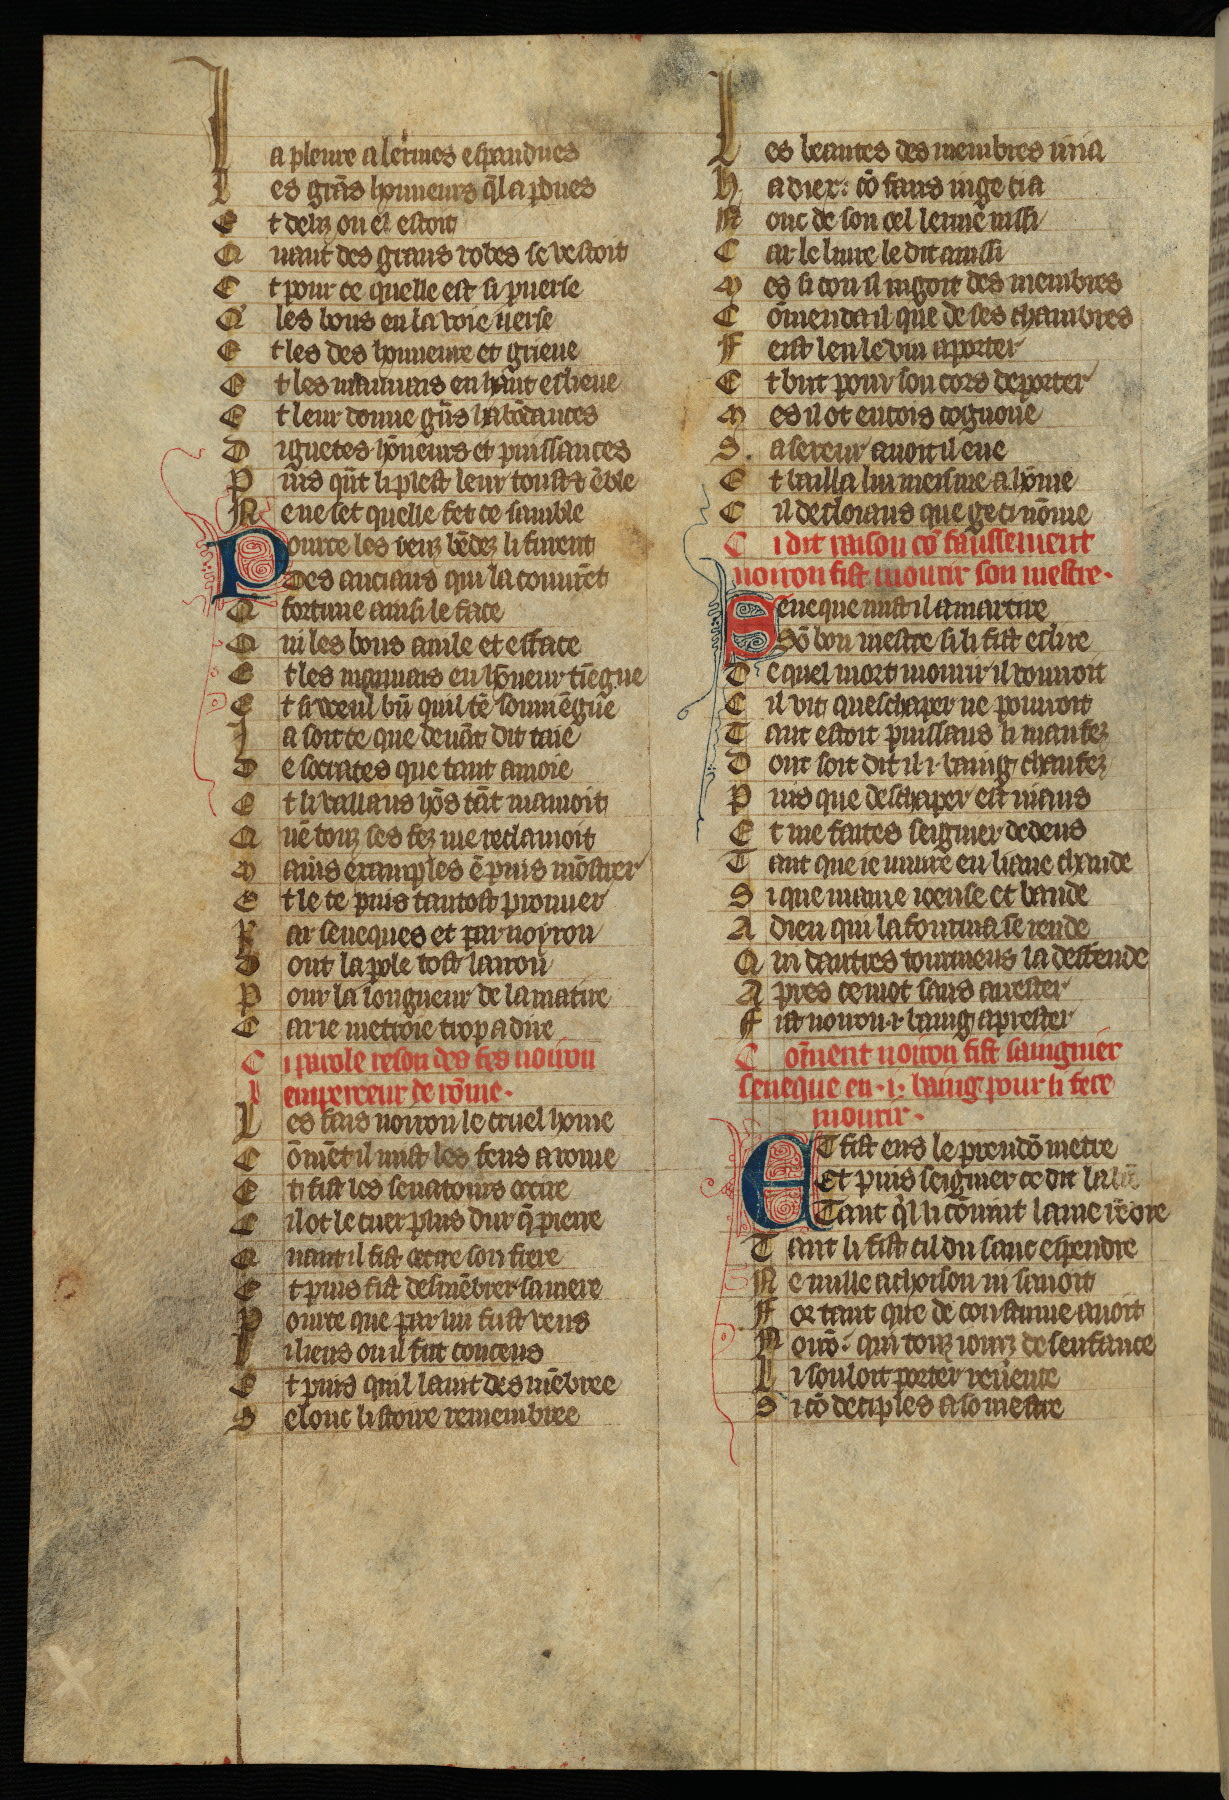 La pleure a lermes espandues
Les grãs honneurs q̃l a pdues
Et deliz ou el estoit
Quant des grans robes se vestoit
Et pour ce quelle est si puerse
Q les bons en la voie uerse
Et les des honneure et grieue
Et les mauuais en haut eslieue
Et leur donne gñs habõdances
Diguetes hõneurs et puissances
Puis qñt li plest leur toust ẽble
Ne ne set quelle fet ce samble
Pource les yeux bẽdez li furent
Des anciens qui la cõnurẽt
Q fortune ainsi le face
Qui les bons auile et efface
Et les mauuais en hõneur tiẽgne
Et si vueil bñ quil tẽ souuiẽgne
Ja soit ce que deuãt dit taie
De socrates que tant amoie
Et li vallans hõs tãt mamoit
Quẽ touz ses fez me reclamoit
Mains examples ẽ puis mõstrer
Et le te puis tantost prouuer
Par seneques et par noyron
Dont la pole tost lairon
Pour la longueur de la matire
Car ie metroie trop a dire
Ci parole reson des fes noiron
lempereeur de rõme.
Les fais noiron le cruel home
Cõmẽt il mist les feus a rome
Et fist les senatours ocirre
Cil ot le cuer plus dur q̃ pierre
Quant il fist ocirre son frere
Et puis fist desmẽbrer sa mere
Pource que par lui fust veus
Li lieus ou il fut conceus
Et puis quil lauit desmẽbree
Selonc listoire remembree
Les beautes des membres iuia
Ha diex: cõ fauis iuge ci a
Nonc de son oel lerme nissi
Car le liure le dit ainsi
Mes si con il iugoit des membres
Cõmenda il que de ses chambres
Feist len le vin aporter
Et but pour son cors deporter
Mes il ot encois cognoue
Sa sereur auoit il eue
Et bailla lui meisme a hõme
Cil desloiaus que ge ci nõme
Ci dit raison cõ faussement
noiron fist mourir son mestre.
Seneque mist il a martire
Sõ bon mestre si li fist eslire
De quel mort mourir il vourroit
Cil vit queschaper ne pouuoit
Tant estoit puissans li maufez
Dont soit dit il .i. baing chaufez
Puis que deschaper est nians
Et me faites seignier dedens
Tant que ie muire en liaue chaude
Si que mame ioeuse et baude
A dieu qui la fourma se rende
Qui dautres tourmens la deffende
Apres ce mot sans arrester
Fist noiron .i. baing aprester
Cõment noiron fist saingnier
seneque en .i. baing pour li fere
mourir.
Et fist ens le preudõ metre
Et puis seignier ce dit la lr̃e
Tant q̃l li cõuint lame rẽdre
Tant li fist cil du sanc espendre
Ne nulle achoison ni sauoit
For tant que de coustume auoit
Noirõ: qui touz iourz de senfance
Li souloit porter reuerence
Si cõ deciples a so mestre